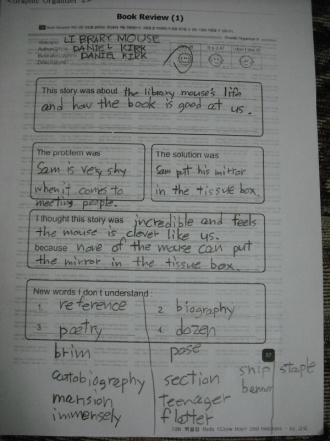 Book Review (1)
LIBRARY MOUSE
DANIEL KIRK
DANIEL KIRK
This story was about the library mouse's life
and how the book is good at us.
The problem was
Sam is very shy
when it comes to
meeting people.
The solution was
Sam put his mirror
in the tissue box.
I thought this story was incredible and feels
the mouse is clever like us.
because none of the mouse can put
the mirror in the tissue box.
New words I don't understand :
1. reference
2. biography
3. poetry
4. dozen
brim
pose
autobiography
section
snip
staple
mansion
teenager
banner
immensely
flatter